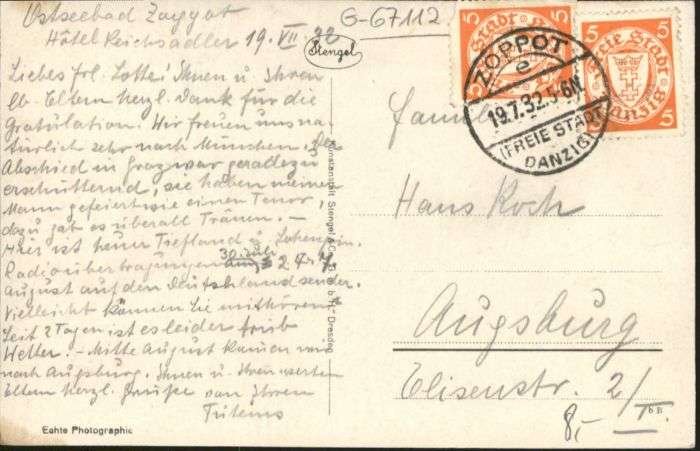 Ostseebad Zoppot
Hôtel Reichsadler 19. VII. 32
G-67112
Stengel
Liebes Frl. Lotte! Ihnen u. Ihren
lb. Eltern herzl. Dank für die
Gratulation. Wir freuen uns na-
türlich sehr nach München. Der
Abschied in Graz war geradezu
erschütternd, sie haben meinen
Mann gefeiert wie einen Tenor,
dazu gab es überall Tränen. –
Hier ist heuer Tiefland u. Lohengrin.
Radioübertragungen 30. Juli
August auf den Deutschlandsender.
Vielleicht können Sie mithören.
Seit 2 Tagen ist es leider trüb
Wetter. – Mitte August kommen wir
nach Augsburg. Ihnen u. Ihren werten
Eltern herzl. Grüße von Ihrem
Echte Photographie
Kunstanstalt Stengel & Co. G.m.b.H. Dresden
5
Freie Stadt
Danzig
5 5
ZOPPOT
e
19.7.32.5-6N
(FREIE STADT
DANZIG)
Familie
Hans Koch
Augsburg
Elisenstr. 2/II
8,-